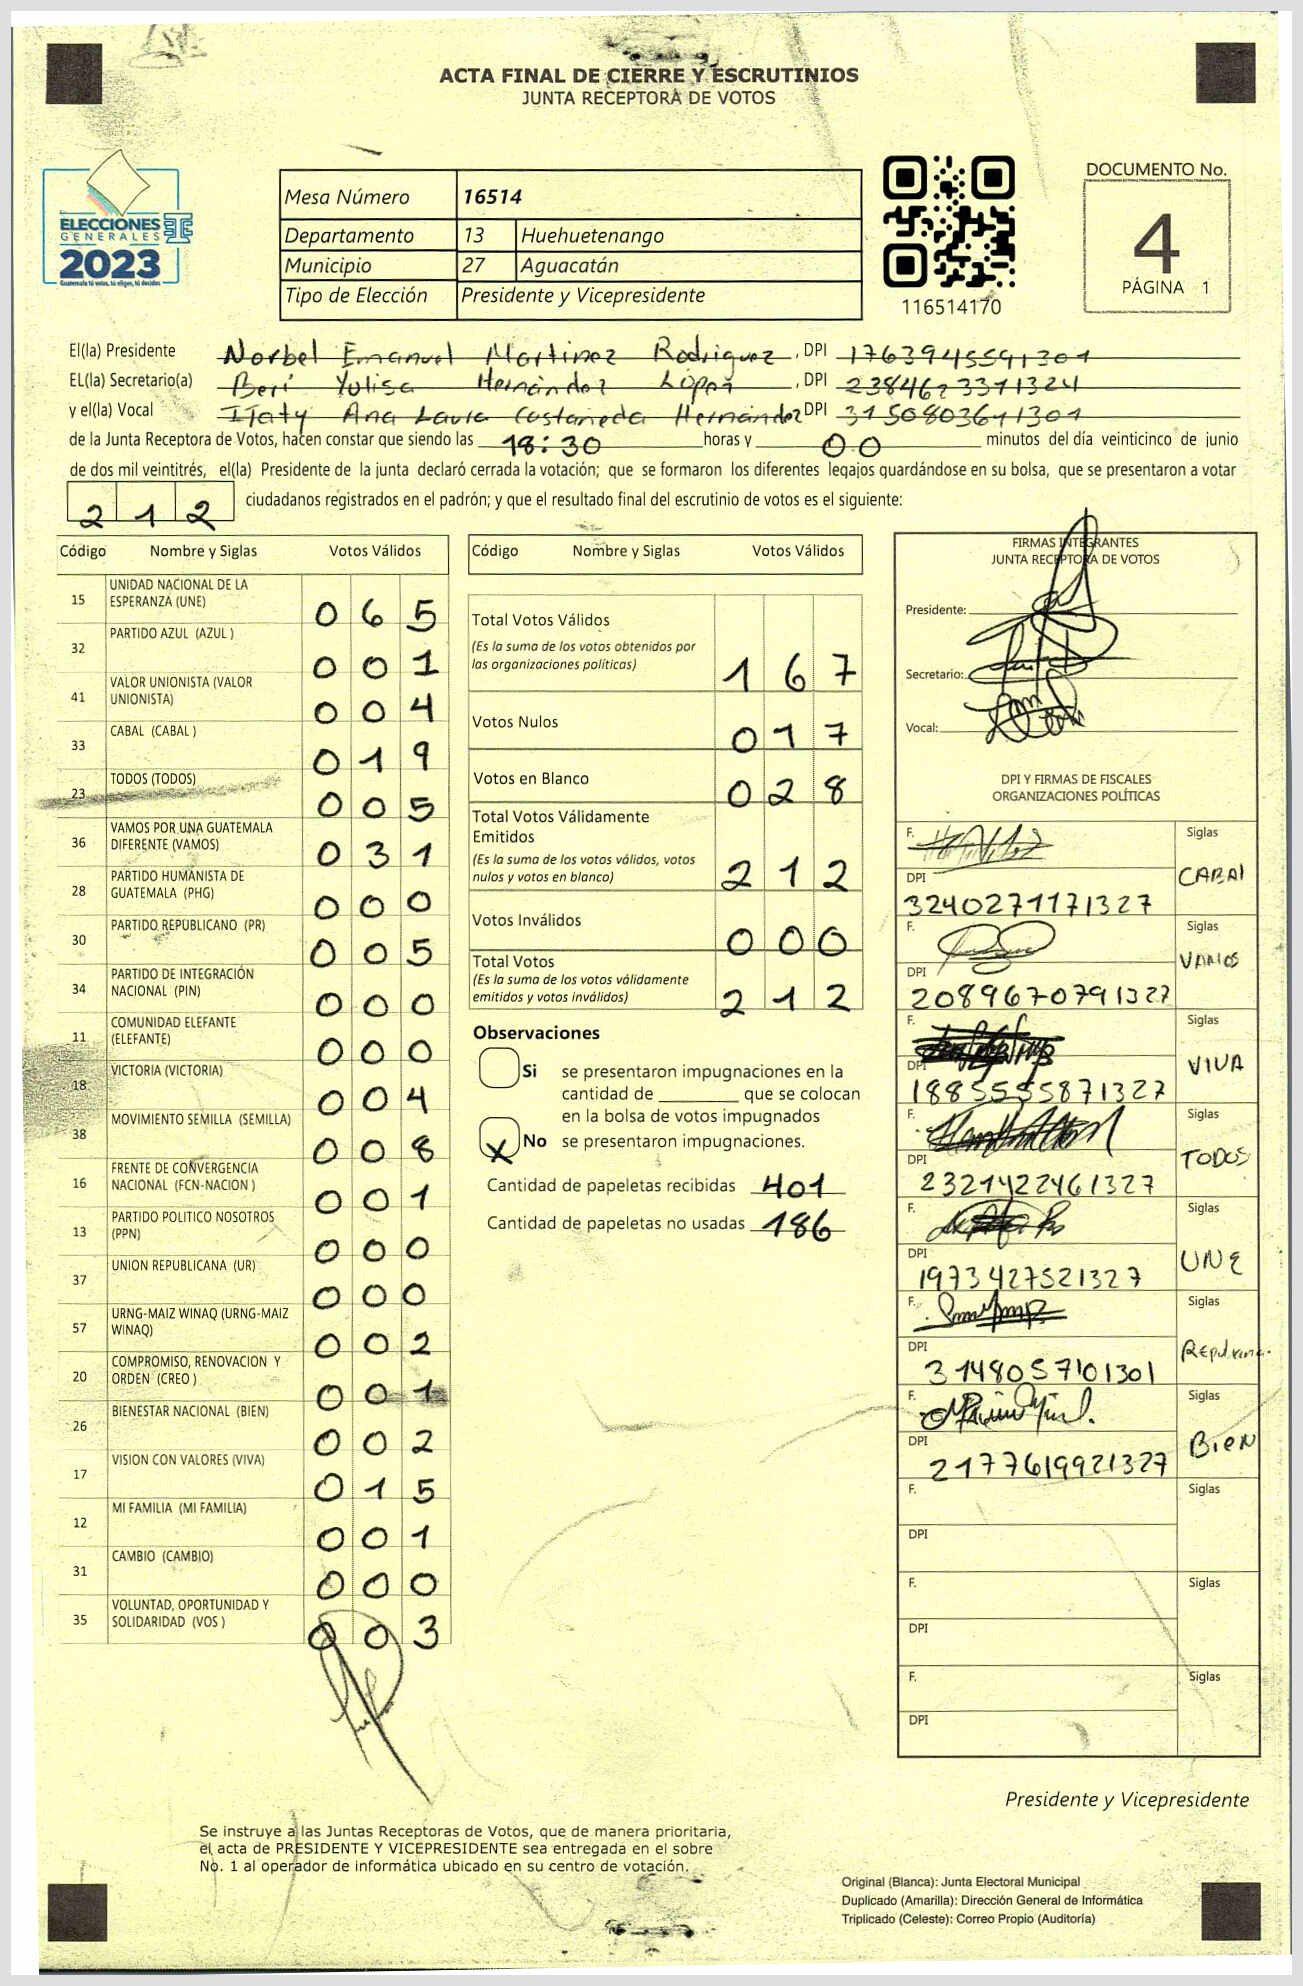 ACTA FINAL DE CIERRE Y ESCRUTINIOS
JUNTA RECEPTORA DE VOTOS
ELECCIONES
GENERALES
2023
Guatemala tú votas, tú eliges, tú decides
Mesa Número 16514
Departamento 13 Huehuetenango
Municipio 27 Aguacatán
Tipo de Elección Presidente y Vicepresidente
116514170
DOCUMENTO No.
4
PÁGINA 1
El(la) Presidente Norbel Emanuel Martinez Rodriguez, DPI 1763945591301
EL(la) Secretario(a) Beri Yulisa Hernández López, DPI 2384623371324
y el(la) Vocal Itaty Ana Laura Castañeda Hernández DPI 3150803641301
de la Junta Receptora de Votos, hacen constar que siendo las 18:30 horas y 00 minutos del día veinticinco de junio
de dos mil veintitrés, el(la) Presidente de la junta declaró cerrada la votación; que se formaron los diferentes legajos guardándose en su bolsa, que se presentaron a votar
212 ciudadanos registrados en el padrón; y que el resultado final del escrutinio de votos es el siguiente:
Código Nombre y Siglas Votos Válidos
15 UNIDAD NACIONAL DE LA ESPERANZA (UNE) 065
32 PARTIDO AZUL (AZUL ) 001
41 VALOR UNIONISTA (VALOR UNIONISTA) 004
33 CABAL (CABAL ) 019
23 TODOS (TODOS) 005
36 VAMOS POR UNA GUATEMALA DIFERENTE (VAMOS) 031
28 PARTIDO HUMANISTA DE GUATEMALA (PHG) 000
30 PARTIDO REPUBLICANO (PR) 005
34 PARTIDO DE INTEGRACIÓN NACIONAL (PIN) 000
11 COMUNIDAD ELEFANTE (ELEFANTE) 000
18 VICTORIA (VICTORIA) 004
38 MOVIMIENTO SEMILLA (SEMILLA) 008
16 FRENTE DE CONVERGENCIA NACIONAL (FCN-NACION ) 001
13 PARTIDO POLITICO NOSOTROS (PPN) 000
37 UNION REPUBLICANA (UR) 000
57 URNG-MAIZ WINAQ (URNG-MAIZ WINAQ) 002
20 COMPROMISO, RENOVACION Y ORDEN (CREO ) 001
26 BIENESTAR NACIONAL (BIEN) 002
17 VISION CON VALORES (VIVA) 015
12 MI FAMILIA (MI FAMILIA) 001
31 CAMBIO (CAMBIO) 000
35 VOLUNTAD, OPORTUNIDAD Y SOLIDARIDAD (VOS ) 003
Código Nombre y Siglas Votos Válidos
Total Votos Válidos
(Es la suma de los votos obtenidos por
las organizaciones políticas) 167
Votos Nulos 017
Votos en Blanco 028
Total Votos Válidamente
Emitidos
(Es la suma de los votos válidos, votos
nulos y votos en blanco) 212
Votos Inválidos 000
Total Votos
(Es la suma de los votos válidamente
emitidos y votos inválidos) 212
Observaciones
Si se presentaron impugnaciones en la
cantidad de ________ que se colocan
en la bolsa de votos impugnados
X No se presentaron impugnaciones.
Cantidad de papeletas recibidas 401
Cantidad de papeletas no usadas 186
FIRMAS INTEGRANTES
JUNTA RECEPTORA DE VOTOS
Presidente:
Secretario:
Vocal:
DPI Y FIRMAS DE FISCALES
ORGANIZACIONES POLÍTICAS
F. Siglas
DPI CABAL
3240271171327
F. Siglas
DPI VAMOS
2089670791327
F. Siglas
DPI VIVA
1885555871327
F. Siglas
DPI TODOS
2321422461327
F. Siglas
DPI UNE
1973427521327
F. Siglas
DPI
3148057101301
F. Siglas
DPI BIEN
2177619921327
F. Siglas
DPI
F. Siglas
DPI
F. Siglas
DPI
Presidente y Vicepresidente
Se instruye a las Juntas Receptoras de Votos, que de manera prioritaria,
el acta de PRESIDENTE Y VICEPRESIDENTE sea entregada en el sobre
No. 1 al operador de informática ubicado en su centro de votación.
Original (Blanca): Junta Electoral Municipal
Duplicado (Amarilla): Dirección General de Informática
Triplicado (Celeste): Correo Propio (Auditoría)